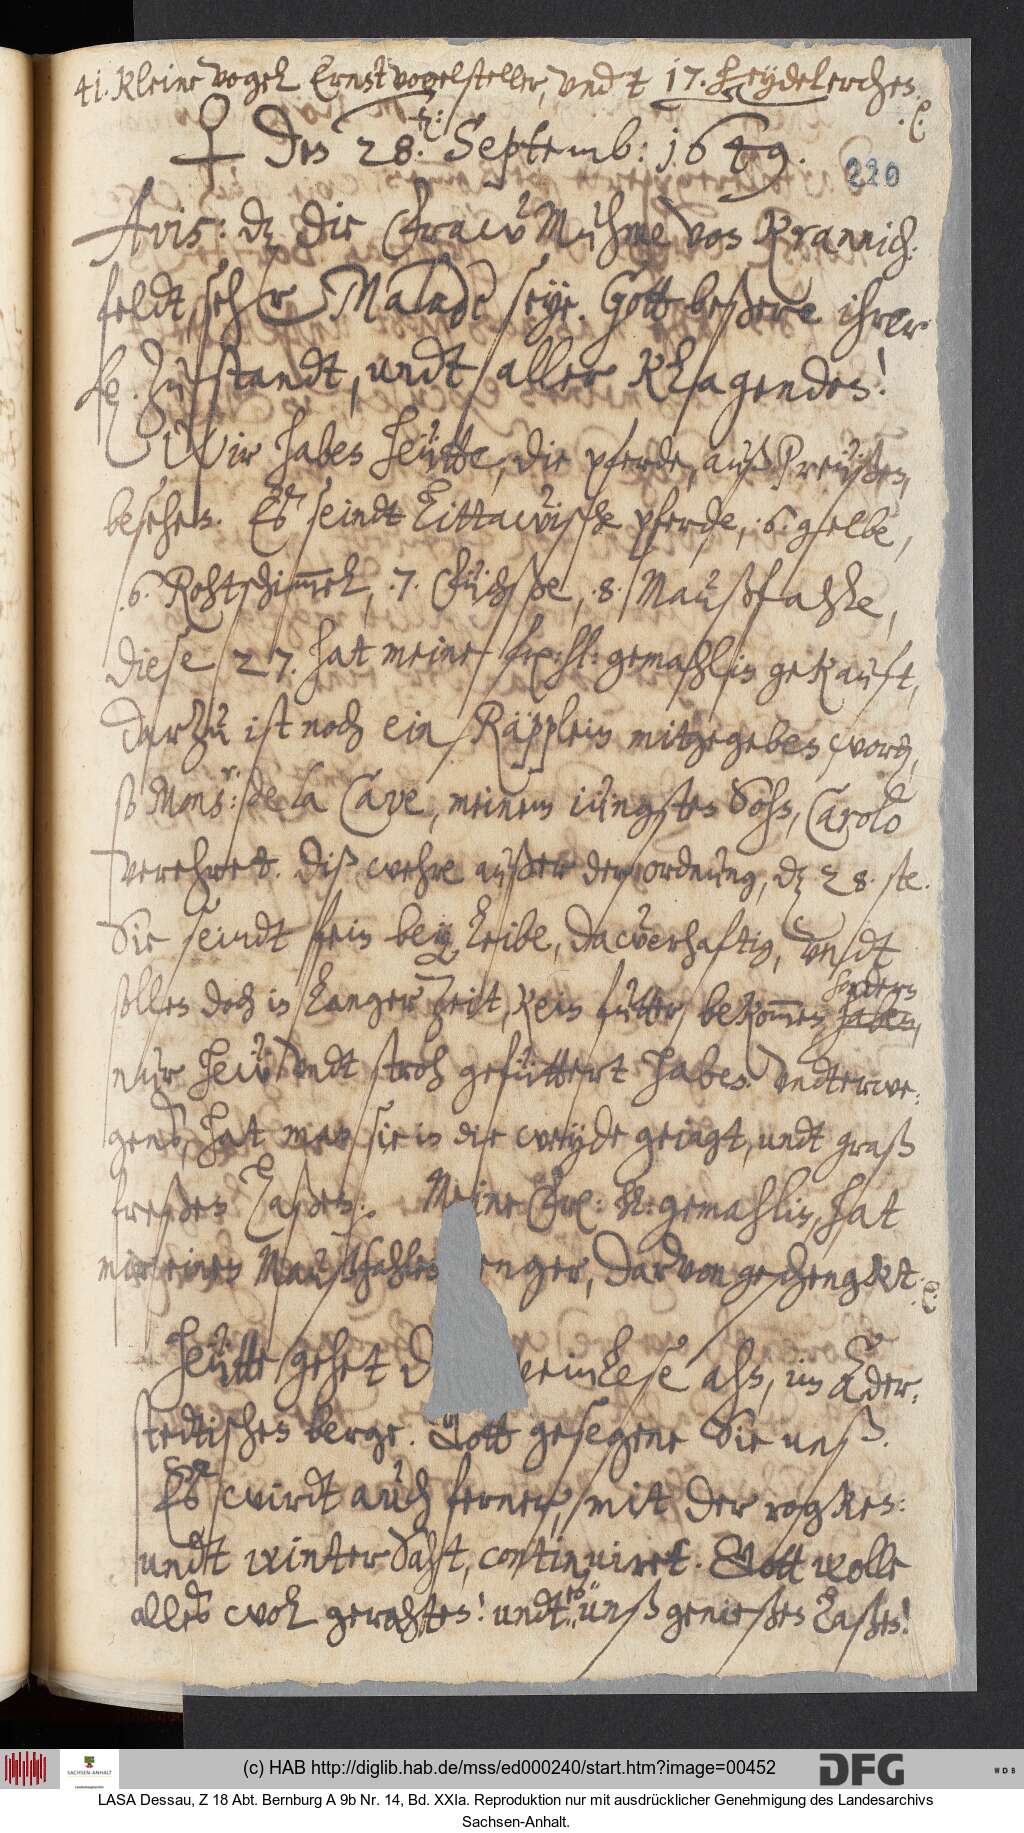 41. kleine vogel Ernst vogelsteller, undt 17. heydelerchen.
♀ Den 28. ten: Septemb: 1649.
220
Avis: dz die Fraw Muhme von Krannich:
feldt, sehr Malade seye. Gott beßere ihrer
Zustandt, undt aller Klagenden!
Wir haben heütte, die pferde, auß Preüßen,
besehen. Es seindt Littawische pferde, 6. gelbe,
6. Rohtschimmel, 7. Füchße, 8. Maußfahle,
diese 27. hat meine fr: hl: gemahlin gekauft,
darzu ist noch ein Räpplein mitgegeben worden,
so Mons.r: de la Cave, meinem iüngsten Sohn, Carolo
verehret. Diß wehre außer der ordnung, dz 28. ste.
Sie seindt fein bey Leibe, dawerhaftig, undt
sollen doch in langer zeit, kein futter bekommen haben, sondern
nur heü undt stroh gefüttert haben. Undterwe:
gens, hat man sie in die weyde geiagt, undt graß
freßen laßen. Meine Fr: hl: gemahlin, hat
mir einen Maußfahlen enger, darvon geschengkt.
Heütte gehet d weinlese ahn, im Ader:
stedtischen berge. Gott gesegene Sie unß.
Es wirdt auch ferner, mit der rogken:
undt winter Saht, continuiret. Gott wolle
alles wol gerahten! undt es unß genießen laßen!
(c) HAB http://diglib.hab.de/mss/ed000240/start.htm?image=00452
SACHSEN-ANHALT
DFG
WDB
LASA Dessau, Z 18 Abt. Bernburg A 9b Nr. 14, Bd. XXIa. Reproduktion nur mit ausdrücklicher Genehmigung des Landesarchivs
Sachsen-Anhalt.